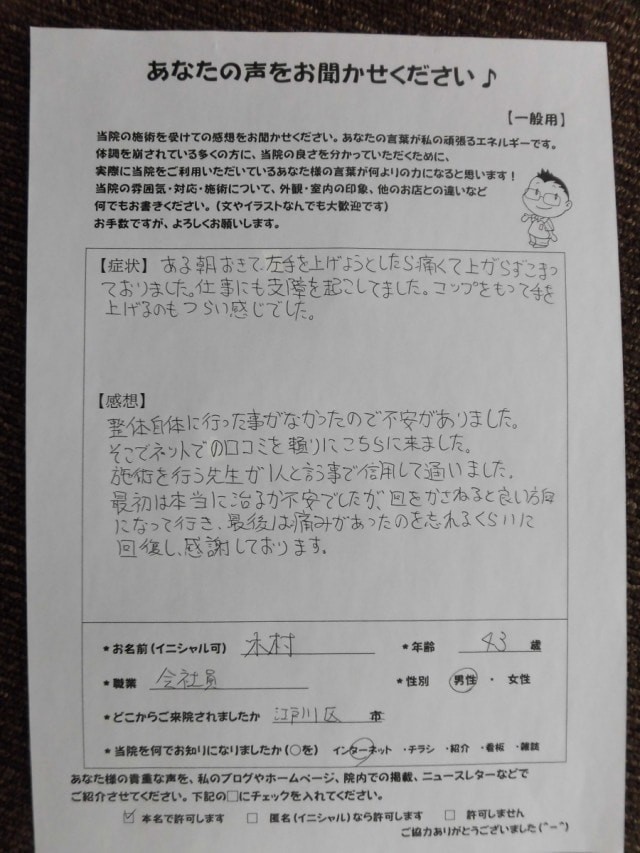 あなたの声をお聞かせください♪
【一般用】
当院の施術を受けての感想をお聞かせください。あなたの言葉が私の頑張るエネルギーです。
体調を崩されている多くの方に、当院の良さを分かっていただくために、
実際に当院をご利用いただいているあなた様の言葉が何よりの力になると思います！
当院の雰囲気・対応・施術について、外観・室内の印象、他のお店との違いなど
何でもお書きください。（文やイラストなんでも大歓迎です）
お手数ですが、よろしくお願いします。
【症状】ある朝おきて、左手を上げようとしたら痛くて上がらずこまっ
ておりました。仕事にも支障を起こしてました。コップをもって手を
上げるのもつらい感じでした。
【感想】
整体自体に行った事がなかったので不安がありました。
そこでネットでの口コミを頼りにこちらに来ました。
施術を行う先生が1人と言う事で信用して通いました。
最初は本当に治るか不安でしたが、回をかさねると良い方向
になって行き、最後は痛みがあったのを忘れるくらいに
回復し、感謝しております。
＊お名前（イニシャル可） 木村 ＊年齢 43 歳
＊職業 会社員 ＊性別 男性 ・ 女性
＊どこからご来院されましたか 江戸川区 市
＊当院を何でお知りになりましたか（○を） インターネット ・チラシ ・紹介 ・看板 ・雑誌
あなた様の貴重な声を、私のブログやホームページ、院内での掲載、ニュースレターなどで
ご紹介させてください。下記の□にチェックを入れてください。
☑ 本名で許可します □ 匿名（イニシャル）なら許可します □ 許可しません
ご協力ありがとうございました(^-^)